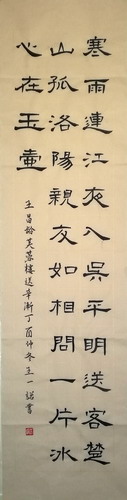 寒雨連江夜入吳平明送客楚
山孤洛陽親友如相問一片冰
心在玉壺
王昌齡芙蓉樓送辛漸丁酉仲冬王一諾書